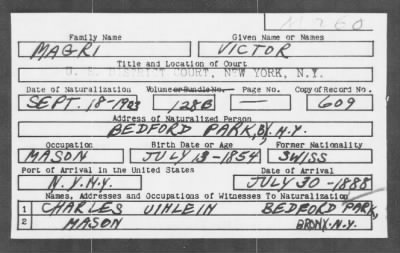 M 260
Family Name Given Name or Names
MAGRI VICTOR
Title and Location of Court
U. S. DISTRICT COURT, NEW YORK, N.Y.
Date of Naturalization Volume or Bundle No. Page No. Copy of Record No.
SEPT. 18-1903 128B — 609
Address of Naturalized Person
BEDFORD PARK, BX, N.Y.
Occupation Birth Date or Age Former Nationality
MASON JULY 13-1854 SWISS
Port of Arrival in the United States Date of Arrival
N.Y.N.Y. JULY 30-1888
Names, Addresses and Occupations of Witnesses To Naturalization
1 CHARLES UIHLEIN BEDFORD PARK,
2 MASON BRONX. N.Y.